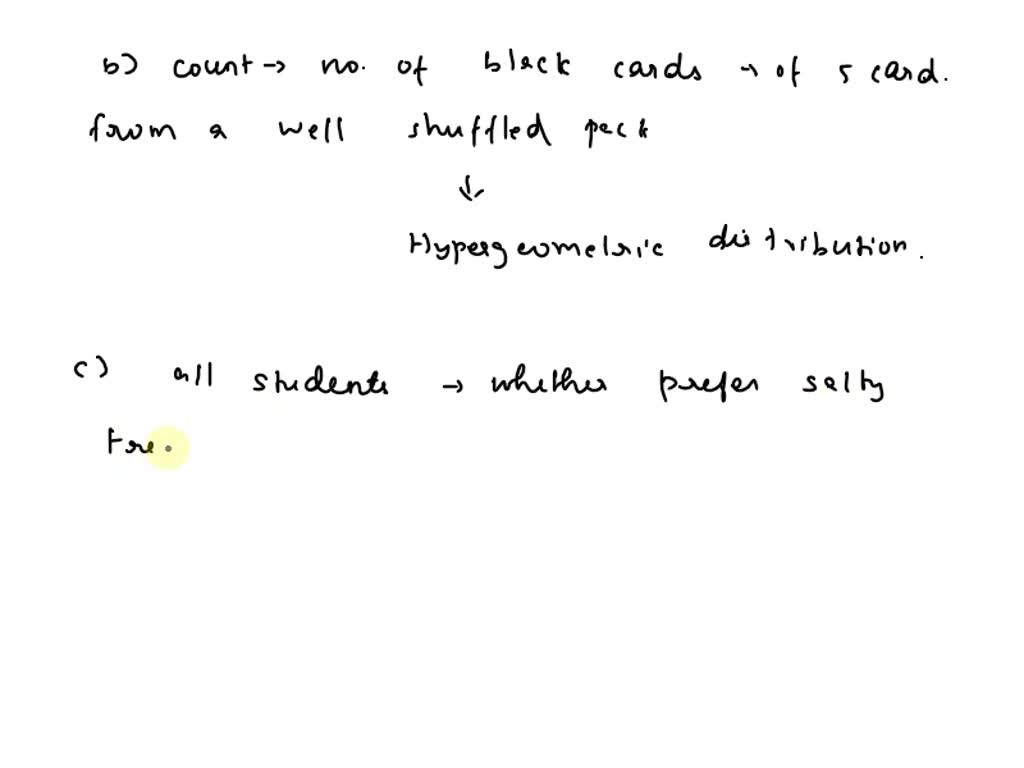 b) count → no. of black cards → of 5 card.
from a well shuffled pack
↓
Hypergeometric distribution.
c) all students → whether prefer salty
tre